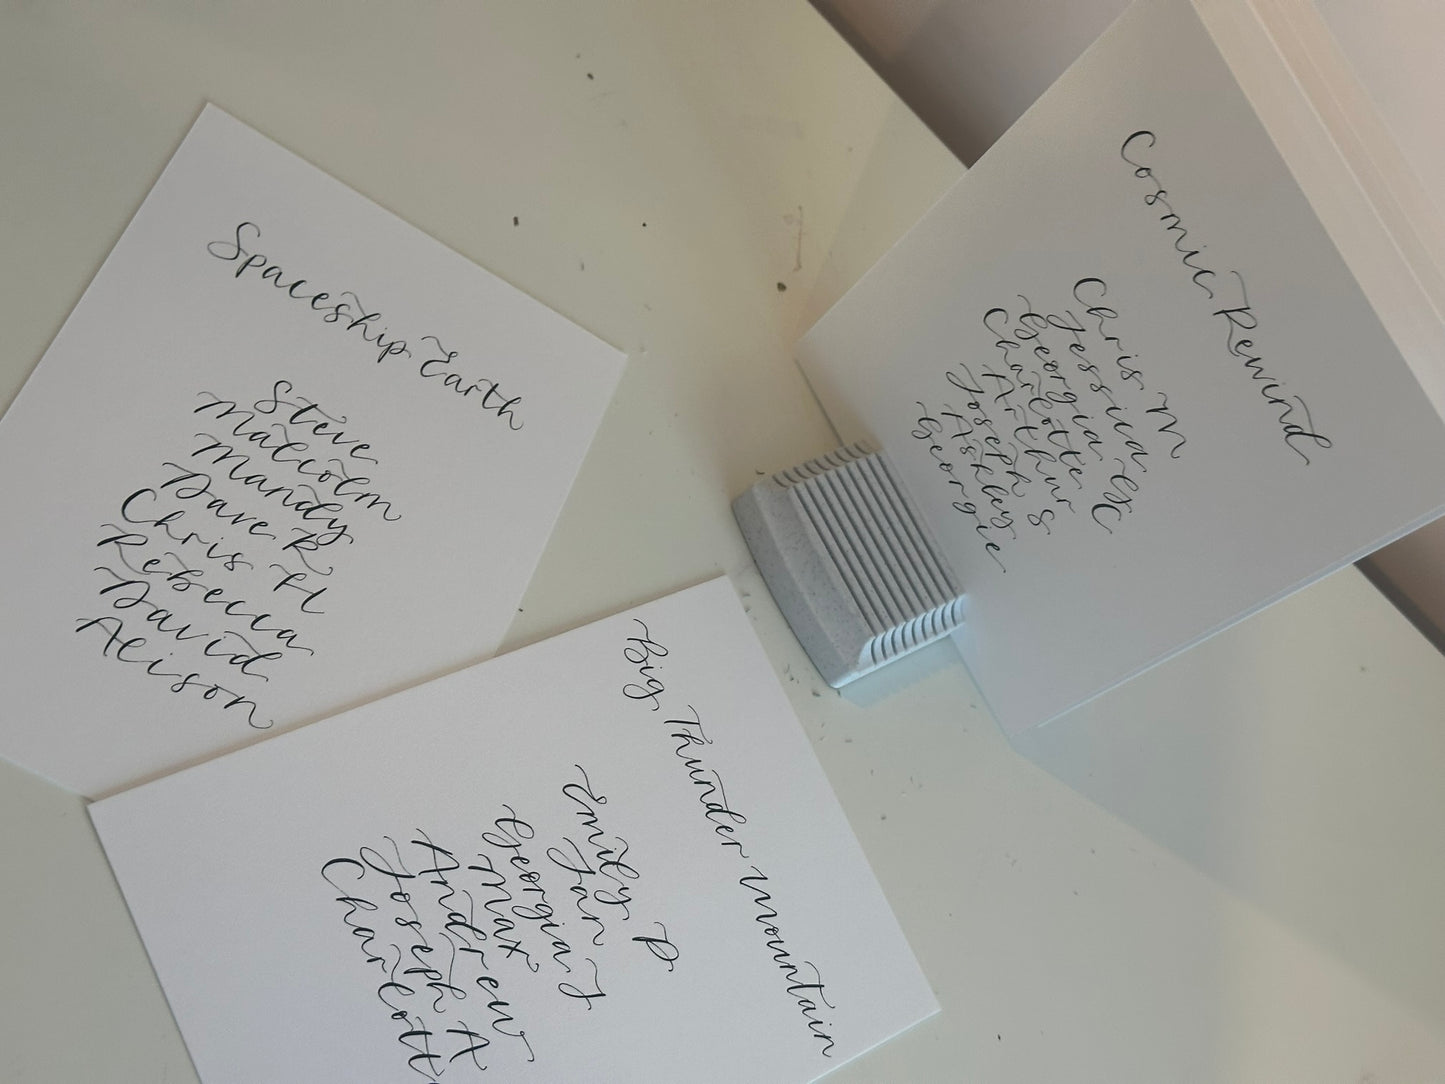 Spaceship Earth
Steve
Malcolm
Mandy
Dave R
Chris H
Rebecca
David
Alison
Big Thunder Mountain
Emily P
Jan
Georgia J
Max
Andrew
Joseph A
Charlott
Cosmic Rewind
Chris M
Jessica
Georgia G
Charlotte C
Arthur
Joseph S
Ashley
Georgie